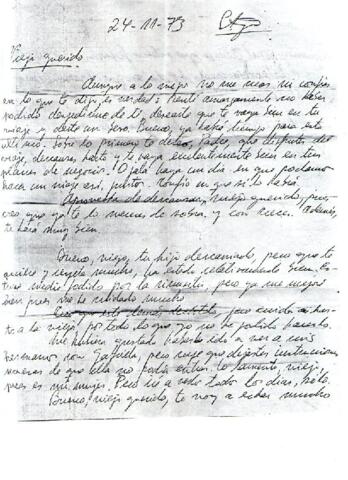 24-11-73 Stgo
Viejo querido
Aunque a lo mejor no me creas ni confíes
en lo que te digo, es verdad: sentí amargamente no haber
podido despedirme de ti, desearte que te vaya bien en tu
viaje y darte un beso. Bueno, ya habrá tiempo para esto
último. Sobre lo primero te deseo, padre, que disfrutes del
viaje, descanses harto y te vaya excelentemente bien en tus
planes de negocio. Ojalá haya un día en que podamos
hacer un viaje así, juntos. Confío en que sí lo habrá.
Aprovecha de descansar, viejo querido, pues
creo que ya te lo mereces de sobra y con creces. Además,
te hará muy bien.
Bueno, viejo, tu hijo descarriado, pero que te
quiere y respeta mucho, ha estado relativamente bien. Es-
tuve medio jodido por la sinusitis, pero ya me mejoré
bien pues me he cuidado mucho.
pero cuida har-
to a la vieja, por todo lo que yo no he podido hacerlo.
Me hubiera gustado haberte ido a ver a mis
hermanos con pero supe que dejaste instrucciones
severas de que ella no podía entrar. Lo lamento, viejo,
pues es mi mujer. Pero iré a verlo todos los días, sólo.
Bueno, viejo querido, te voy a echar mucho